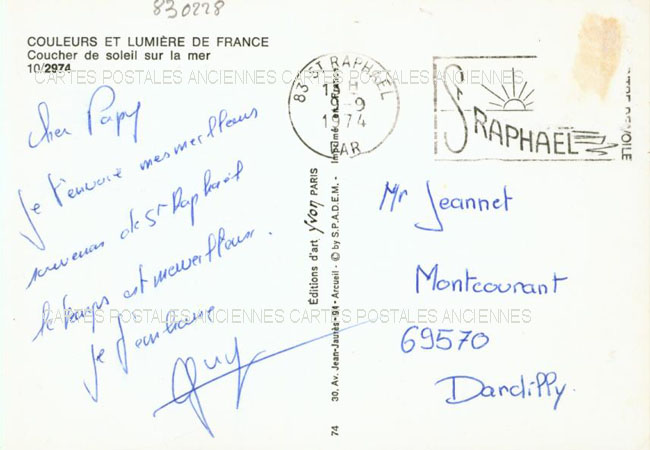 830228
COULEURS ET LUMIÈRE DE FRANCE
Coucher de soleil sur la mer
10/2974
CARTES POSTALES ANCIENNES CARTES POSTALES ANCIENNES
Cher Papy
je t'envoie mes meilleurs
souvenirs de St Raphaël
le temps est merveilleux.
je t'embrasse
Guy
83 ST RAPHAEL
9
1974
VAR
ST RAPHAËL
VOILE
Éditions d'art yvon PARIS
30, Av. Jean-Jaurès - 94 - Arcueil - © by S.P.A.D.E.M. - Imprimé en C.E. France
74
Mr Jeannet
Montcourant
69570
Dardilly.
CARTES POSTALES ANCIENNES CARTES POSTALES ANCIENNES